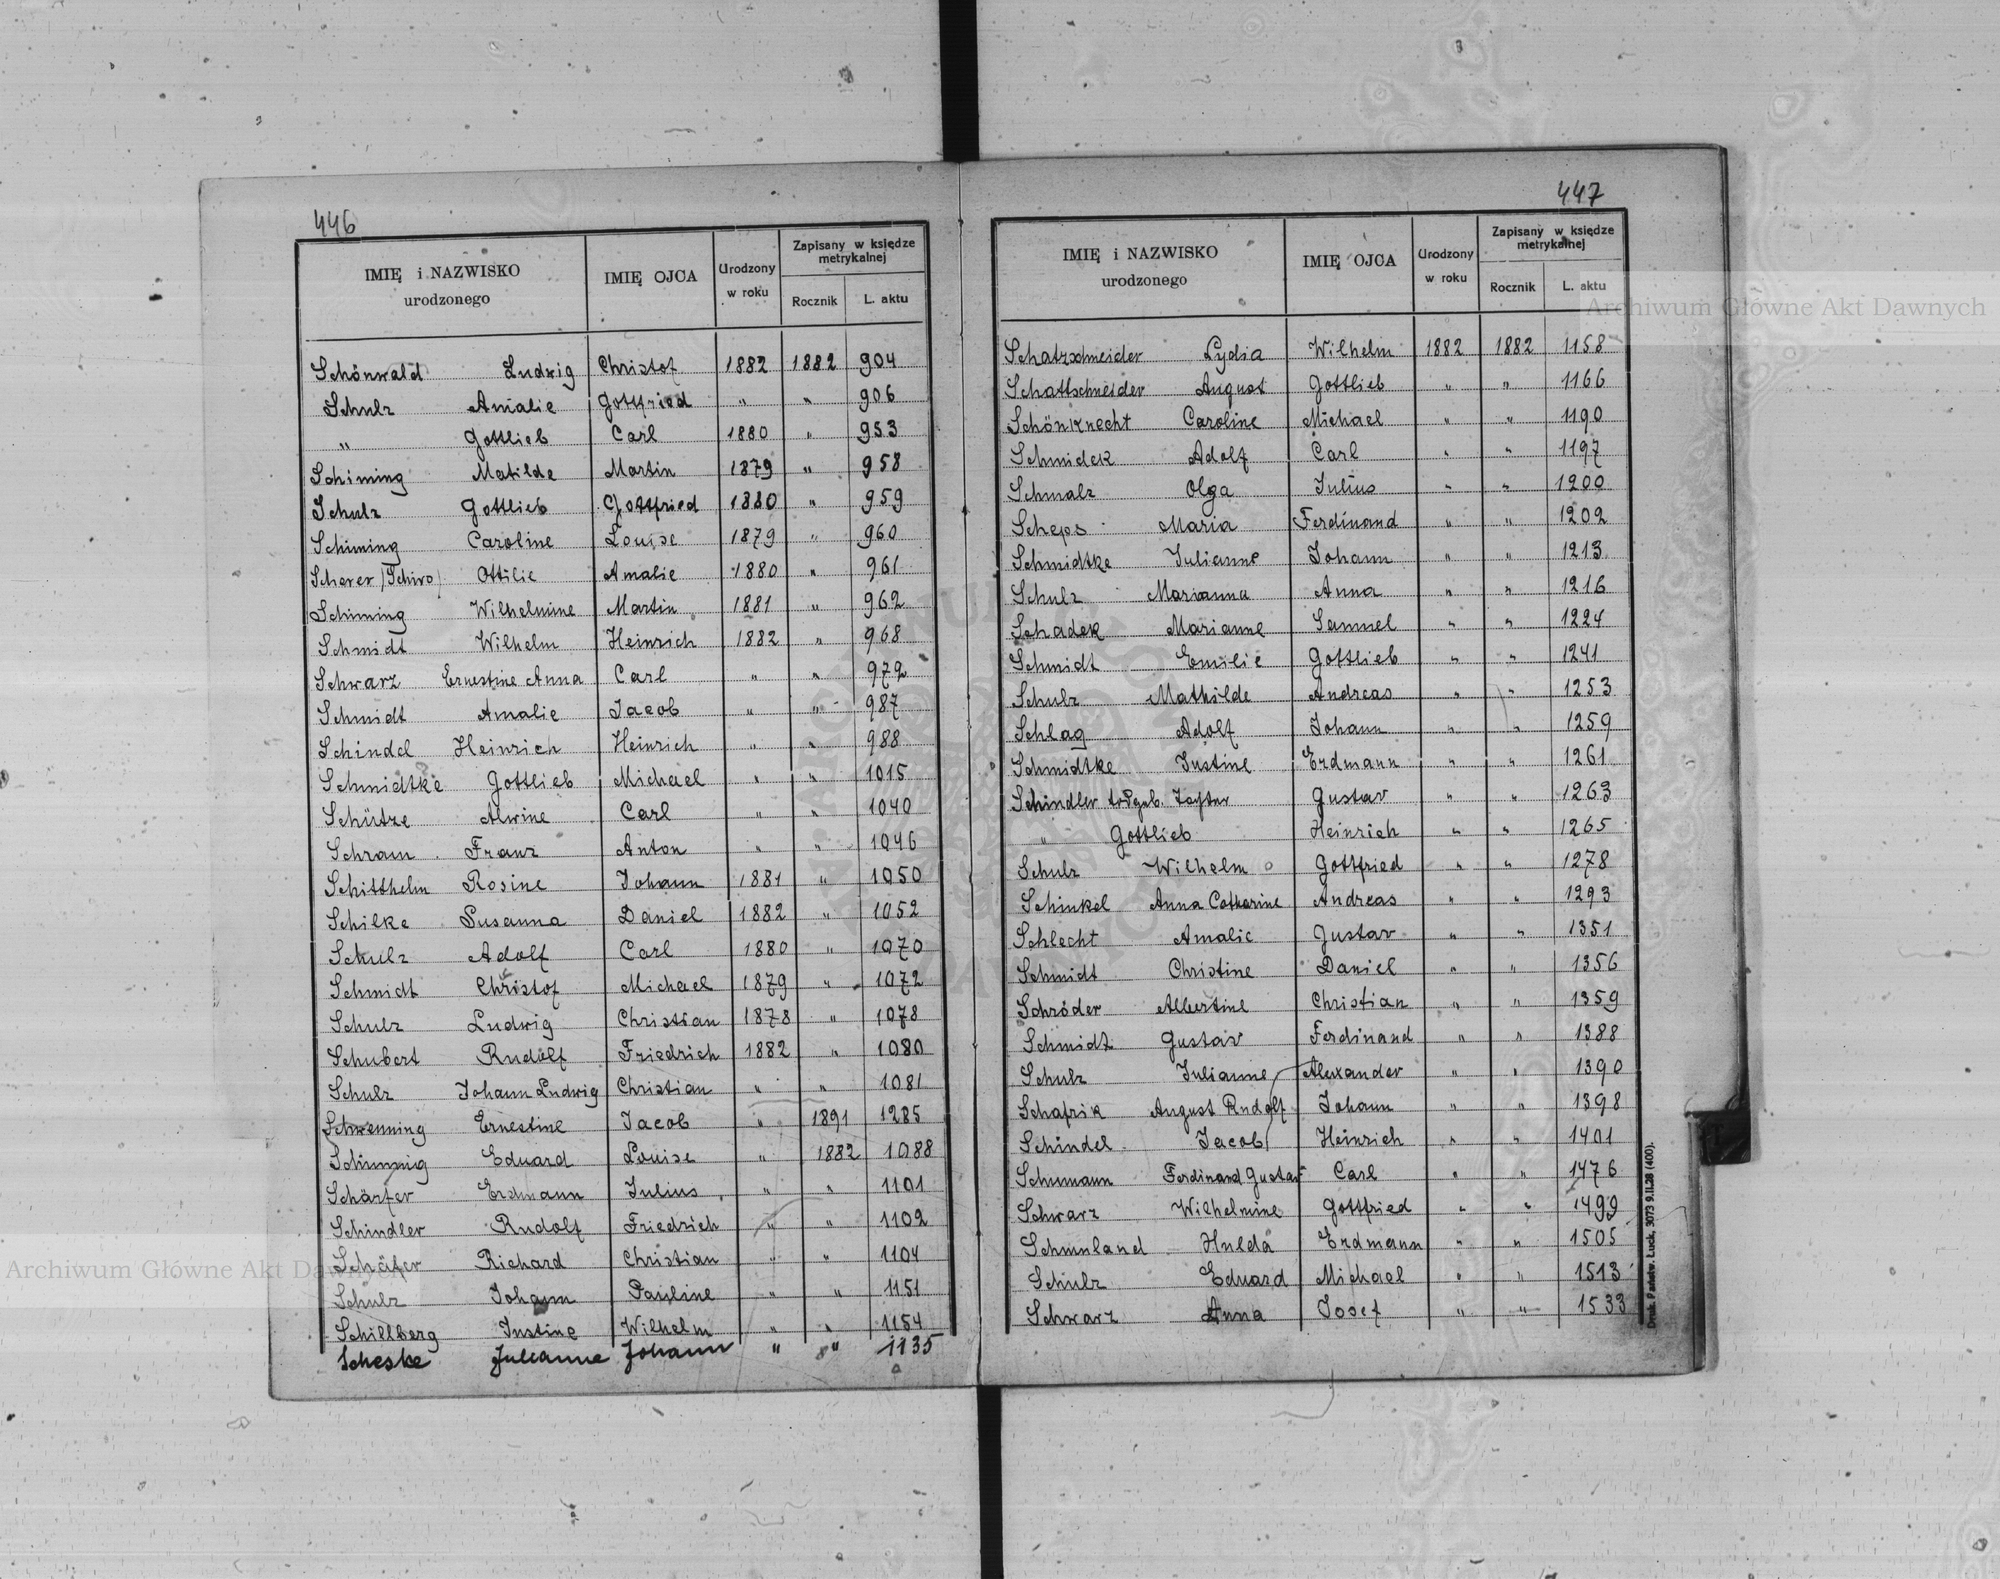 446
IMIĘ i NAZWISKO urodzonego IMIĘ OJCA Urodzony w roku Zapisany w księdze metrykalnej Rocznik L. aktu
Schönwald Ludwig Christof 1882 1882 904
Schulz Amalie Gottfried " " 906
" Gottlieb Carl 1880 " 953
Schiming Matilde Martin 1879 " 958
Schulz Gottlieb Gottfried 1880 " 959
Schiming Caroline Louise 1879 " 960
Scherer /Schiro/ Ottilie Amalie 1880 " 961
Schiming Wilhelmine Martin 1881 " 962
Schmidt Wilhelm Heinrich 1882 " 968
Schwarz Ernestine Anna Carl " " 972
Schmidt Amalie Jacob " " 987
Schindel Heinrich Heinrich " " 988
Schmidtke Gottlieb Michael " " 1015
Schütze Alwine Carl " " 1040
Schram Franz Anton " " 1046
Schitthelm Rosine Johann 1881 " 1050
Schilke Susanna Daniel 1882 " 1052
Schulz Adolf Carl 1880 " 1070
Schmidt Christof Michael 1879 " 1072
Schulz Ludwig Christian 1878 " 1078
Schubert Rudolf Friedrich 1882 " 1080
Schulz Johann Ludwig Christian " " 1081
Schwenning Ernestine Jacob " 1891 1285
Eduard Louise " 1882 1088
Schärfer Erdmann Julius " " 1101
Schindler Rudolf Friedrich " " 1102
Schäfer Richard Christian " " 1104
Schulz Johann Pauline " " 1151
Schillberg Justine Wilhelm " " 1154
Scheske Julianne Johann " " 1135
447
IMIĘ i NAZWISKO urodzonego IMIĘ OJCA Urodzony w roku Zapisany w księdze metrykalnej Rocznik L. aktu
Schatzschneider Lydia Wilhelm 1882 1882 1158
Schattschneider August Gottlieb " " 1166
Schönknecht Caroline Michael " " 1190
Schmidek Adolf Carl " " 1197
Schmalz Olga Julius " " 1200
Scheps Maria Ferdinand " " 1202
Schmidtke Julianne Johann " " 1213
Schulz Marianna Anna " " 1216
Schadek Marianne Samuel " " 1224
Schmidt Emilie Gottlieb " " 1241
Schulz Mathilde Andreas " " 1253
Schlag Adolf Johann " " 1259
Schmidtke Justine Erdmann " " 1261
Schindler todgeb. Gustav " " 1263
" Gottlieb Heinrich " " 1265
Schulz Wilhelm Gottfried " " 1278
Schinkel Anna Catharine Andreas " " 1293
Schlecht Amalie Gustav " " 1351
Schmidt Christine Daniel " " 1356
Schröder Albertine Christian " " 1359
Schmidt Gustav Ferdinand " " 1388
Schulz Julianne Alexander " " 1390
Schafrik August Rudolf Johann " " 1398
Schindel Jacob Heinrich " " 1401
Schumann Ferdinand Gustav Carl " " 1476
Schwarz Wilhelmine Gottfried " " 1499
Schmuland Hulda Erdmann " " 1505
Schulz Eduard Michael " " 1513
Schwarz Anna Josef " " 1533
Druk. Państw. Łuck, 3073 9.II.28 (400).
Archiwum Główne Akt Dawnych
Archiwum Główne Akt Dawnych